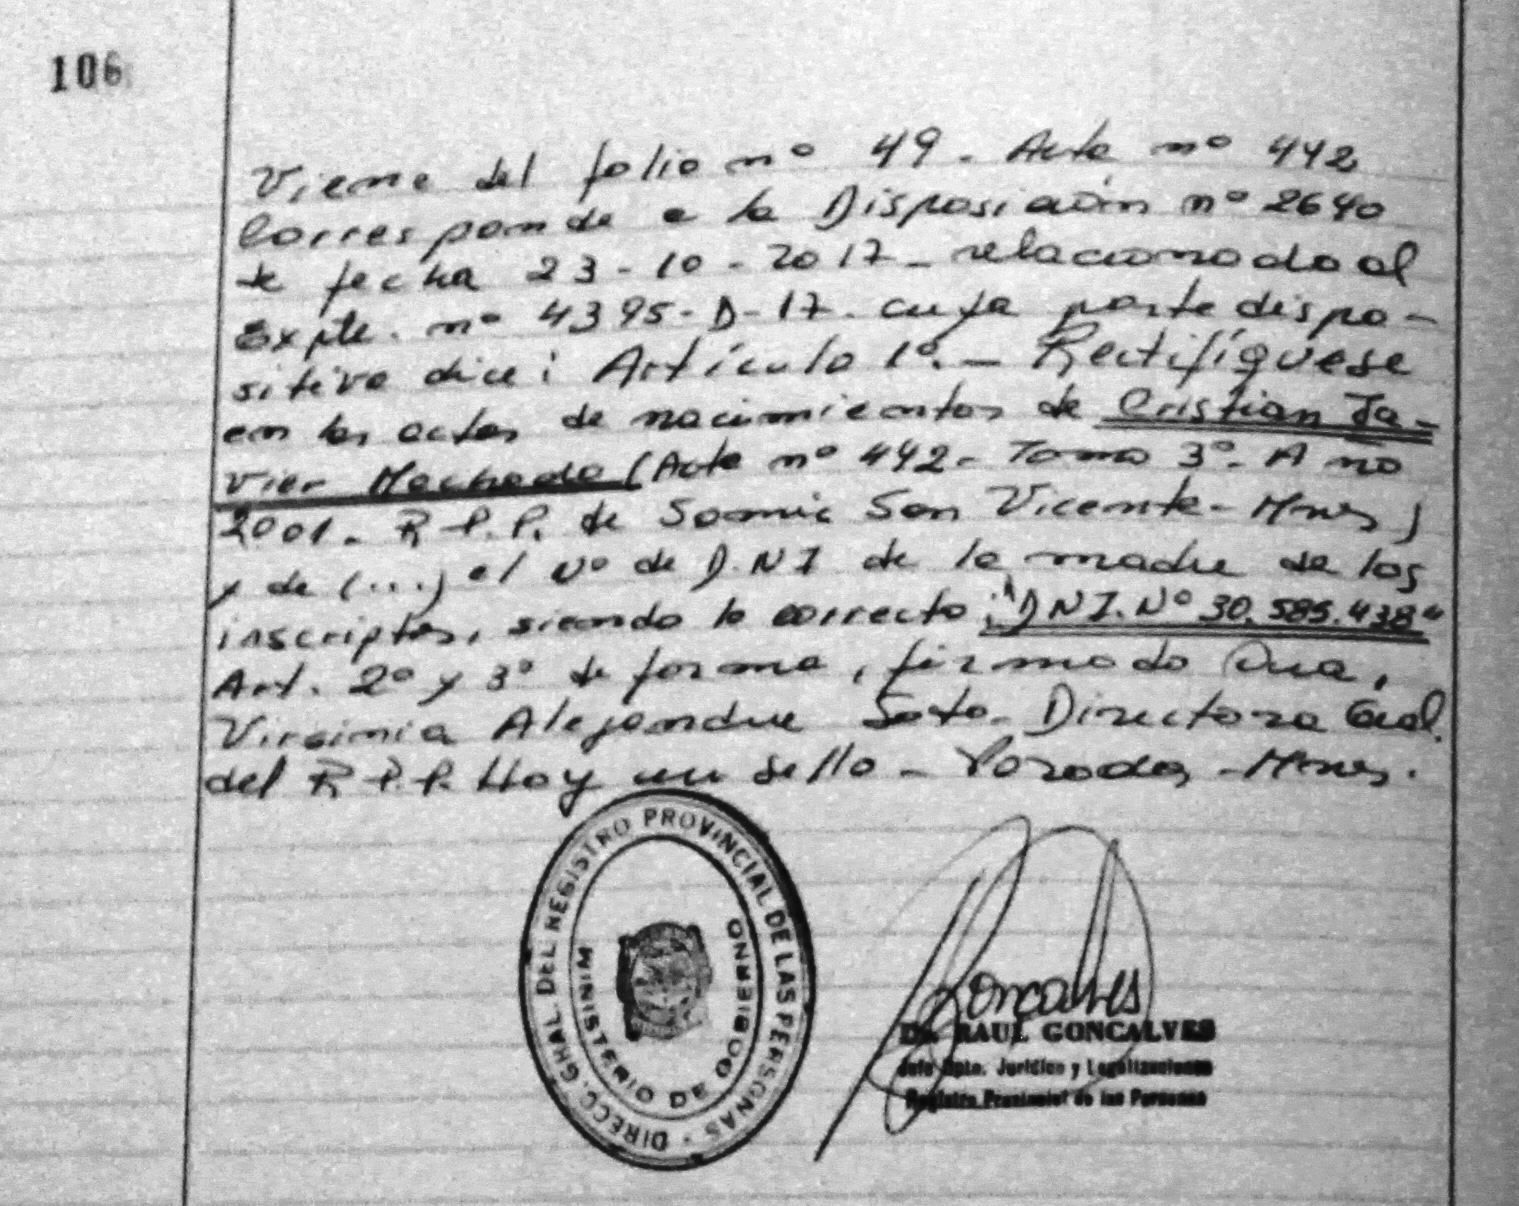 106
Viene del folio nº 49. Acta nº 442
Corresponde a la Disposición nº 2640
de fecha 23-10-2017_ relacionado al
Expte. nº 4395-D-17. cuya parte dispo-
sitiva dice: Artículo 1º._ Rectifíquese
en las actas de nacimientos de Cristian Ja-
vier Machado (Acta nº 442- Tomo 3º- Año
2001. R.P.P. de Samic San Vicente-Mnes)
y de (...) el Nº de D.N.I de la madre de los
inscriptos, siendo lo correcto: "DNI.Nº 30.585.438"
Art. 2º y 3º de forma, firmado Dra,
Virginia Alejandra Soto- Directora Gral.
del R.P.P. Hay un sello- Posadas-Mnes.
DIRECC. GRAL. DEL REGISTRO PROVINCIAL DE LAS PERSONAS
MINISTERIO DE GOBIERNO
Goncalves
Dr. RAUL GONCALVES
Jefe Dpto. Jurídico y Legalizaciones
Registro Provincial de las Personas